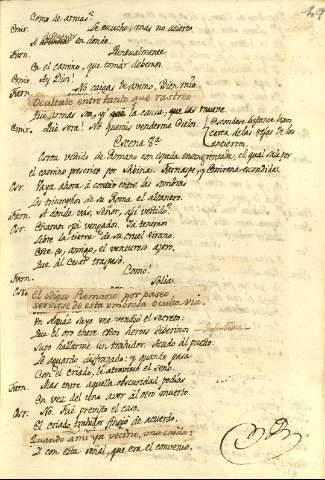 Como de armas?
Emir. Te escucho; mas no acierto
A en donde.
Farn. Puntualmente
En el camino, que tomar debemos
Emir. Ay Dios!
Farn. No caigas de animo, bien mio.
Ocultate entre tanto que rastreo
Que armas son, y la causa, que las mueve.
Emir. Que sera! No querais venderme Cielos. Escondese distante bien cerca de las rejas de los encierros.
Escena 8ª
Cosroa vestido de Romano con espada ensangrentada, el qual sale por
el camino prescrito por Sabina: Farnaspe, y Emirena escondidas.
Osr. Vaya ahora á contar entre las sombras
Los triumphos de su Roma el altanero.
Farn. A donde vas, Señor, asi vestido?
Osr. Estamos ya vengados. Ya tenemos
Libre la tierra de su cruel tirano.
Este es, amigo, el venturoso azero,
Que al Cesar traspasó.
Farn. Como!
Osr. Solia
El odioso Romano por paseo
servirse de esta umbrosa oculta via.
Un Sequáz suyo me vendió el secreto:
Que el oro entre estos heroes tiberinos
Supo hallarme un traidor. Acudo al puesto:
Le aguardo disfrazado: y quando pasa
Con el criado, le atraviesé el seno.
Farn. Mas entre aquella obscuridad podias
En vez del uno aver al otro muerto.
Osr. No. Fue previsto el caso.
El criado traidor fingió de acuerdo,
Quando á mi ya vecino, una caida:
Y con esta señal, que era el convenio,